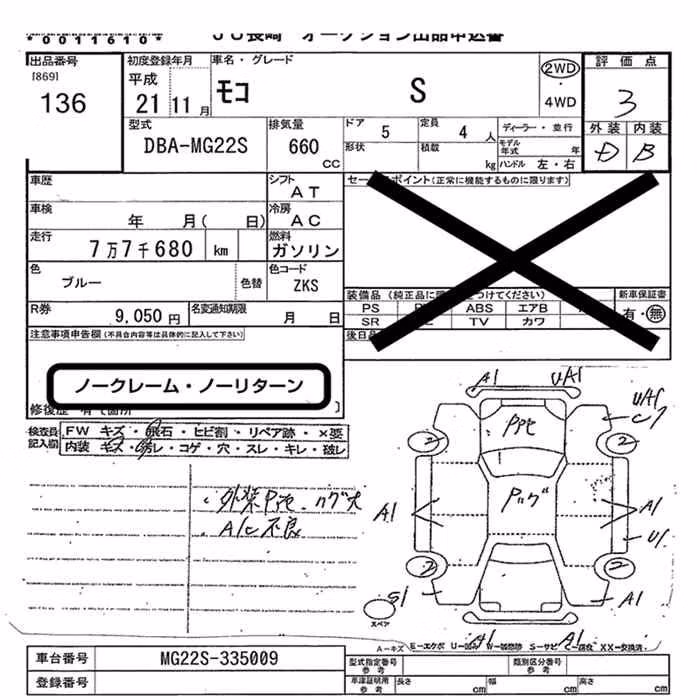 *0011610*
JU長崎 オークション出品申込書
出品番号
[869]
136
初度登録年月
平成
21 11 月
車名・グレード
モコ S
2WD
・
4WD
評価点
3
外装 内装
D B
型式
DBA-MG22S
排気量
660
CC
ドア
5
定員
4 人
ディーラー・並行
形状
積載
kg
モデル年式 年
ハンドル 左・右
車歴
シフト
AT
車検
年 月( 日)
冷房
AC
走行
7万7千680 km
燃料
ガソリン
色
ブルー
色替
色コード
ZKS
R券
9,050 円
名変通知期限
月 日
セールスポイント(正常に機能するものに限ります)
装備品
PS ABS エアB
SR TV カワ
新車保証書
有・無
後日品
注意事項申告欄(不具合内容等は具体的に記入して下さい)
ノークレーム・ノーリターン
修復歴 有( 箇所 )
検査員記入欄
FW キズ・飛石・ヒビ割・リペア跡・×要
内装 キズ・汚レ・コゲ・穴・スレ・キレ・破レ
A/C不良
A1 UA1
UA1
2 2
A1 A1
U1
2 2
S1
A1
スペア
A1 A1
A-キズ E-エクボ U-凹み W-補修跡 S-サビ C-腐食 XX-交換済
車台番号
MG22S-335009
登録番号
型式指定番号
参考
類別区分番号
参考
車庫証明用
参考
長さ cm 幅 cm 高さ cm